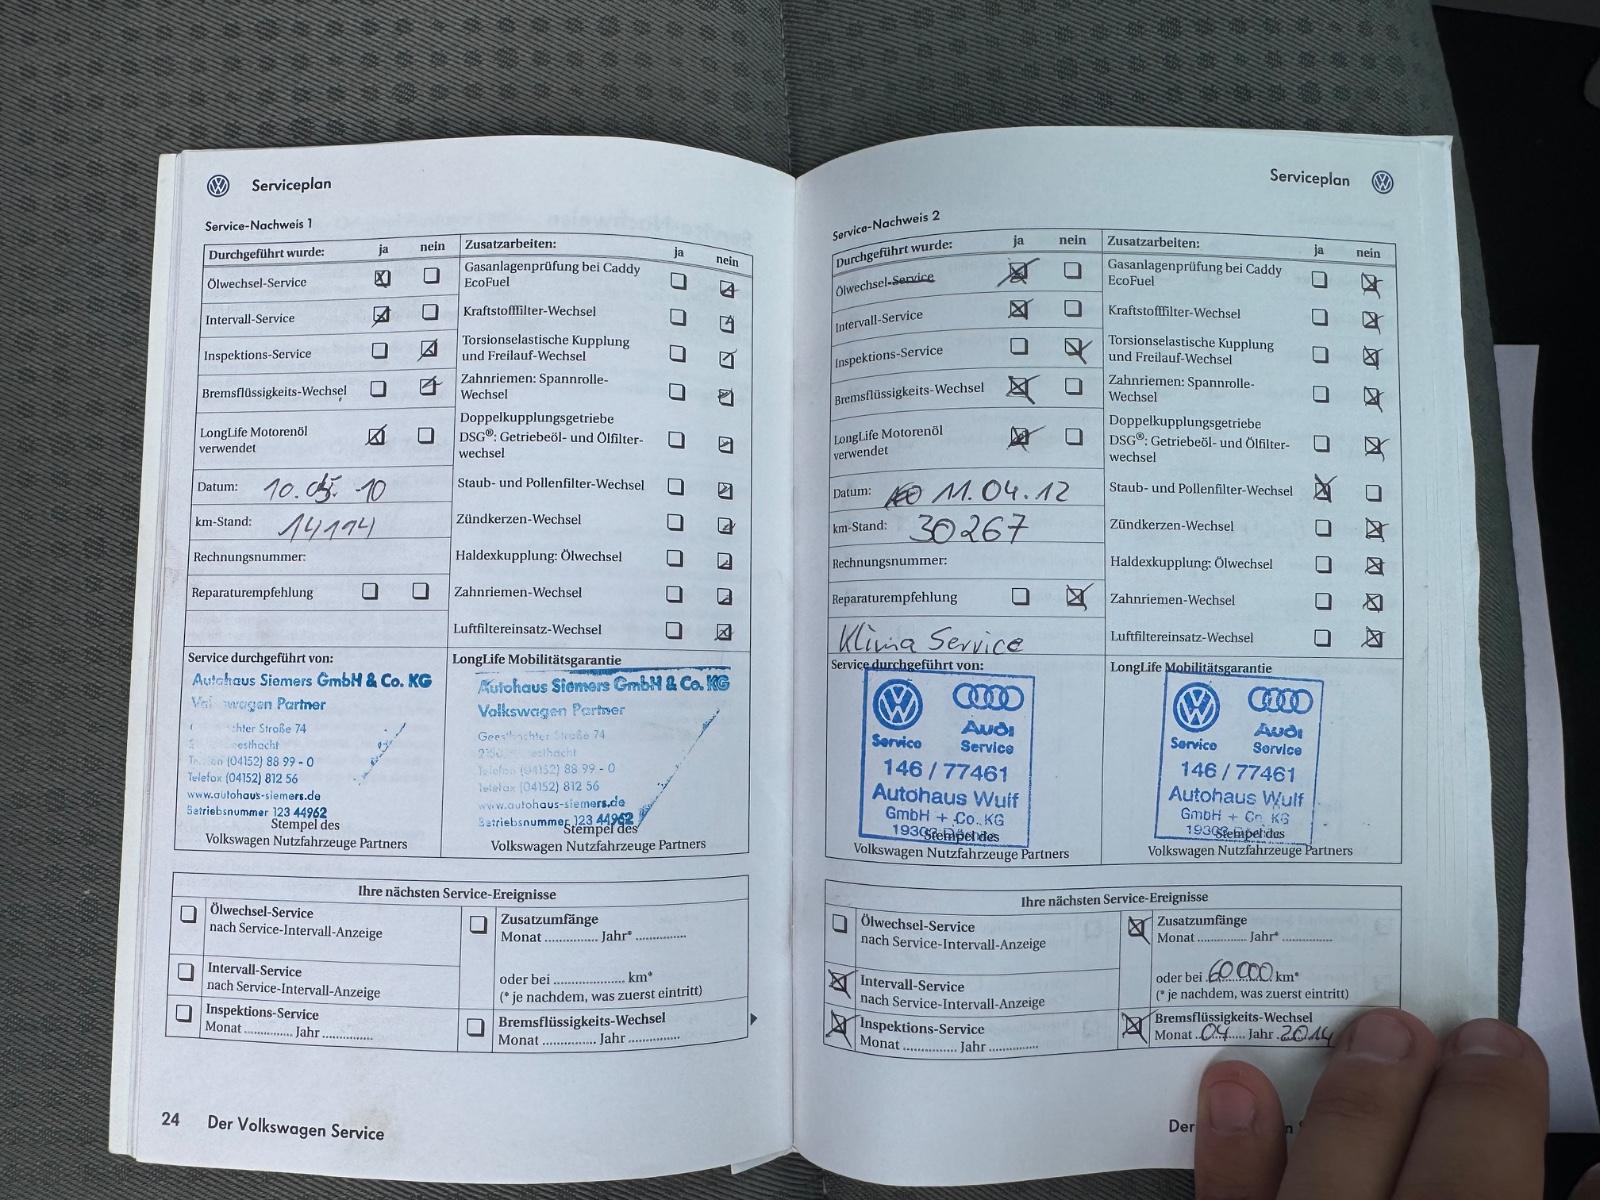 Serviceplan
Service-Nachweis 1
Durchgeführt wurde: ja nein
Ölwechsel-Service
Intervall-Service
Inspektions-Service
Bremsflüssigkeits-Wechsel
LongLife Motorenöl
verwendet
Datum: 10.05.10
km-Stand: 14194
Rechnungsnummer:
Reparaturempfehlung
Zusatzarbeiten: ja nein
Gasanlagenprüfung bei Caddy
EcoFuel
Kraftstofffilter-Wechsel
Torsionselastische Kupplung
und Freilauf-Wechsel
Zahnriemen: Spannrolle-
Wechsel
Doppelkupplungsgetriebe
DSG®: Getriebeöl- und Ölfilter-
wechsel
Staub- und Pollenfilter-Wechsel
Zündkerzen-Wechsel
Haldexkupplung: Ölwechsel
Zahnriemen-Wechsel
Luftfiltereinsatz-Wechsel
Service durchgeführt von:
Autohaus Siemers GmbH & Co. KG
Volkswagen Partner
Straße 74
Telefax (04152) 812 56
www.autohaus-siemers.de
Betriebsnummer 123 44962
Stempel des
Volkswagen Nutzfahrzeuge Partners
LongLife Mobilitätsgarantie
Autohaus Siemers GmbH & Co. KG
Volkswagen Partner
Geesthachter Straße 74
Telefon (04152) 88 99 - 0
Telefax (04152) 812 56
www.autohaus-siemers.de
Betriebsnummer 123 44962
Stempel des
Volkswagen Nutzfahrzeuge Partners
Ihre nächsten Service-Ereignisse
Ölwechsel-Service
nach Service-Intervall-Anzeige
Intervall-Service
nach Service-Intervall-Anzeige
Inspektions-Service
Monat .............. Jahr ..............
Zusatzumfänge
Monat .............. Jahr* ..............
oder bei .................... km*
(* je nachdem, was zuerst eintritt)
Bremsflüssigkeits-Wechsel
Monat .............. Jahr ..............
24 Der Volkswagen Service
Serviceplan
Service-Nachweis 2
Durchgeführt wurde: ja nein
Ölwechsel-Service
Intervall-Service
Inspektions-Service
Bremsflüssigkeits-Wechsel
LongLife Motorenöl
verwendet
Datum: 11.04.12
km-Stand: 30267
Rechnungsnummer:
Reparaturempfehlung
Klima Service
Zusatzarbeiten: ja nein
Gasanlagenprüfung bei Caddy
EcoFuel
Kraftstofffilter-Wechsel
Torsionselastische Kupplung
und Freilauf-Wechsel
Zahnriemen: Spannrolle-
Wechsel
Doppelkupplungsgetriebe
DSG®: Getriebeöl- und Ölfilter-
wechsel
Staub- und Pollenfilter-Wechsel
Zündkerzen-Wechsel
Haldexkupplung: Ölwechsel
Zahnriemen-Wechsel
Luftfiltereinsatz-Wechsel
Service durchgeführt von:
Audi
Service Service
146 / 77461
Autohaus Wulf
GmbH + Co. KG
Stempel des
Volkswagen Nutzfahrzeuge Partners
LongLife Mobilitätsgarantie
Audi
Service Service
146 / 77461
Autohaus Wulf
GmbH + Co. KG
Stempel des
Volkswagen Nutzfahrzeuge Partners
Ihre nächsten Service-Ereignisse
Ölwechsel-Service
nach Service-Intervall-Anzeige
Intervall-Service
nach Service-Intervall-Anzeige
Inspektions-Service
Monat .............. Jahr ..............
Zusatzumfänge
Monat .............. Jahr* ..............
oder bei 60000 km*
(* je nachdem, was zuerst eintritt)
Bremsflüssigkeits-Wechsel
Monat 04 Jahr 2014
Der